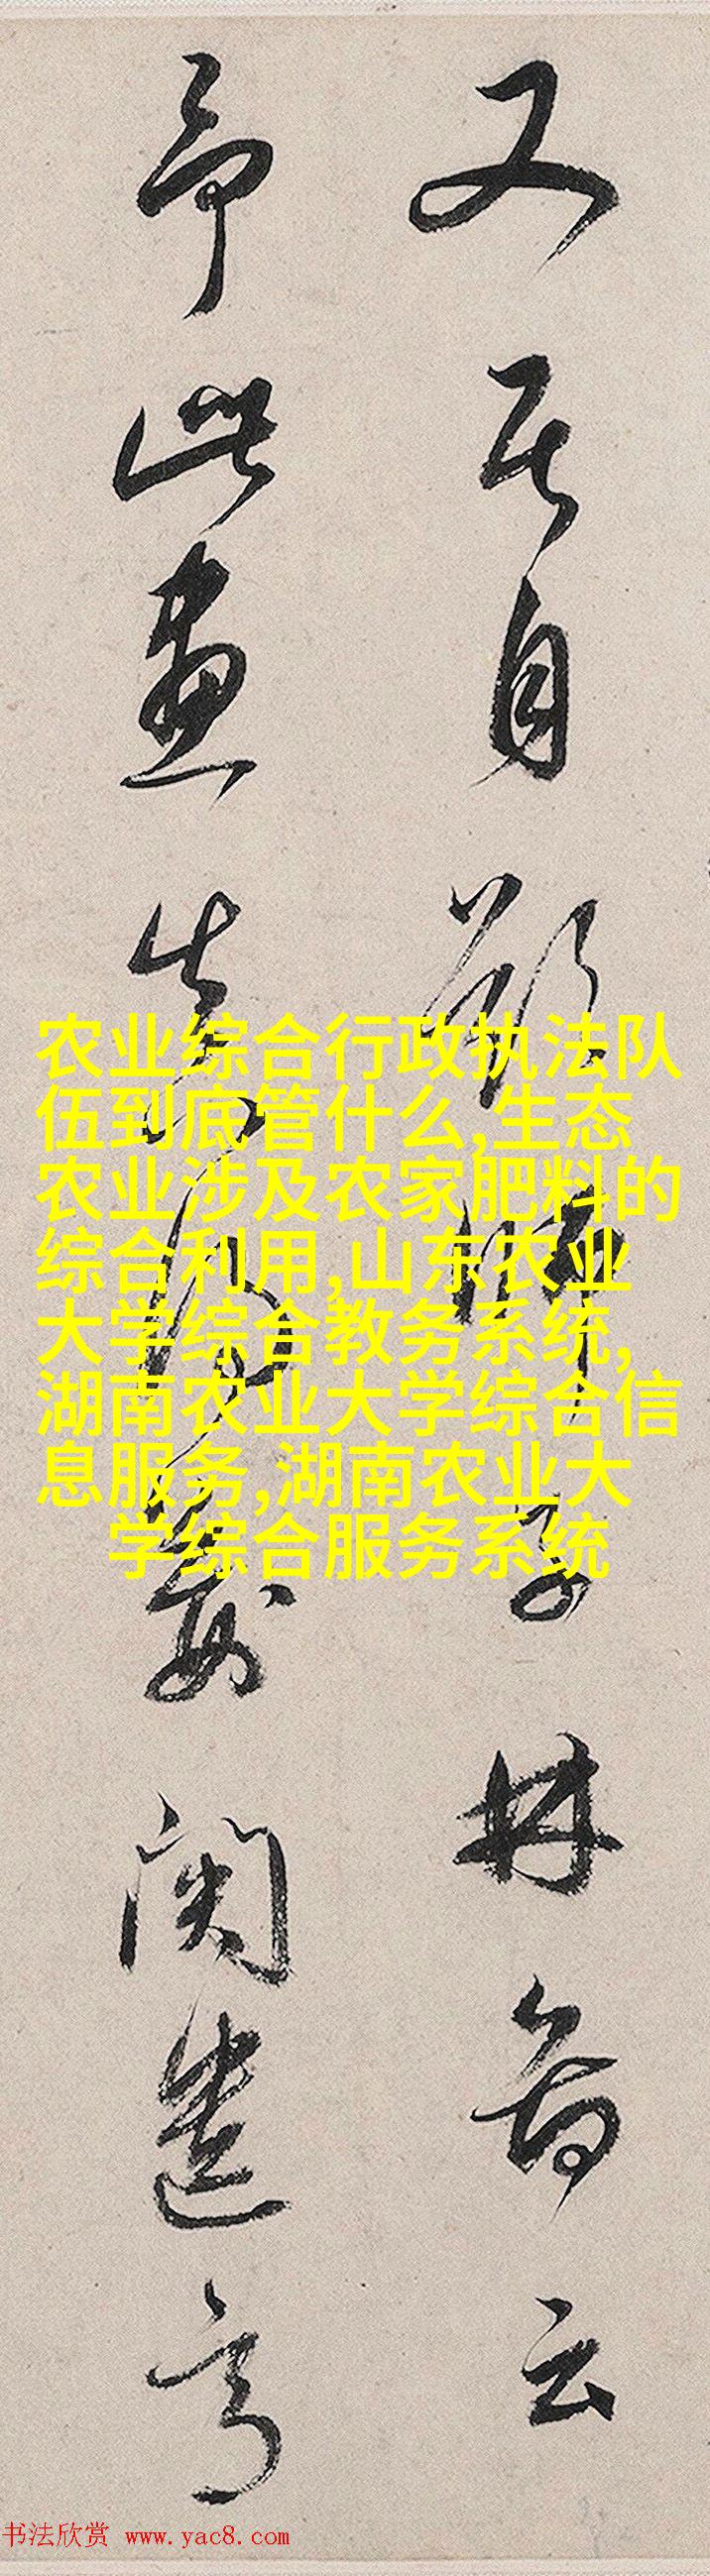 又其自题师子林图云
予此画真得荆关遗意
农业综合行政执法队
伍到底管什么,生态
农业涉及农家肥料的
综合利用,山东农业
大学综合教务系统,
湖南农业大学综合信
息服务,湖南农业大
学综合服务系统
书法欣赏 www.yac8.com